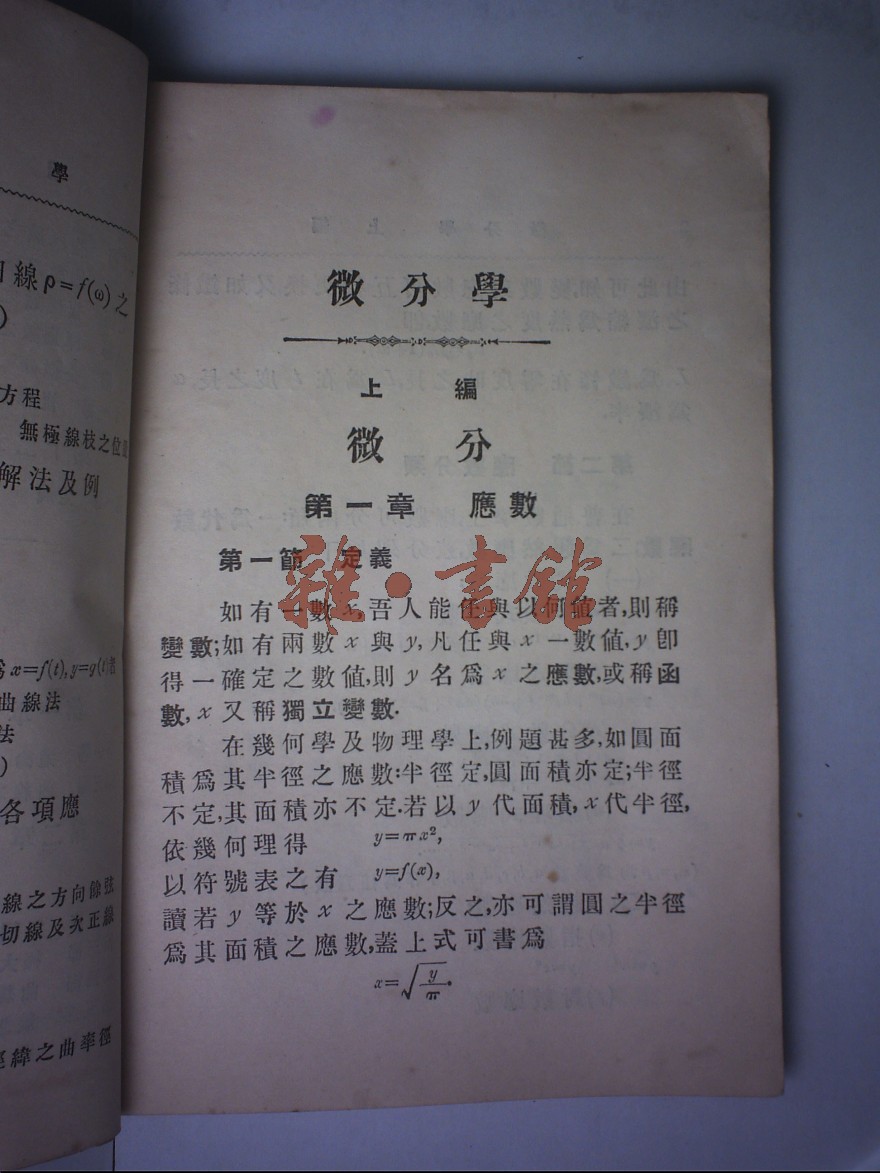 學
線ρ=f(ω)之
)
方程
無極線枝之位
解法及例
x=f(t), y=g(t)者
曲線法
法
)
各項應
線之方向餘弦
切線及次正線
緯之曲率徑
微分學
上編
微分
第一章 應數
第一節 定義
雜·書館
如有一數x,吾人能任與以何值者,則稱
變數;如有兩數x與y,凡任與x一數值,y卽
得一確定之數值,則y名爲x之應數,或稱函
數,x又稱獨立變數.
在幾何學及物理學上,例題甚多,如圓面
積爲其半徑之應數:半徑定,圓面積亦定;半徑
不定,其面積亦不定.若以y代面積,x代半徑,
依幾何理得 y=πx²,
以符號表之有 y=f(x),
讀若y等於x之應數;反之,亦可謂圓之半徑
爲其面積之應數,蓋上式可書爲
x=√(y/π).